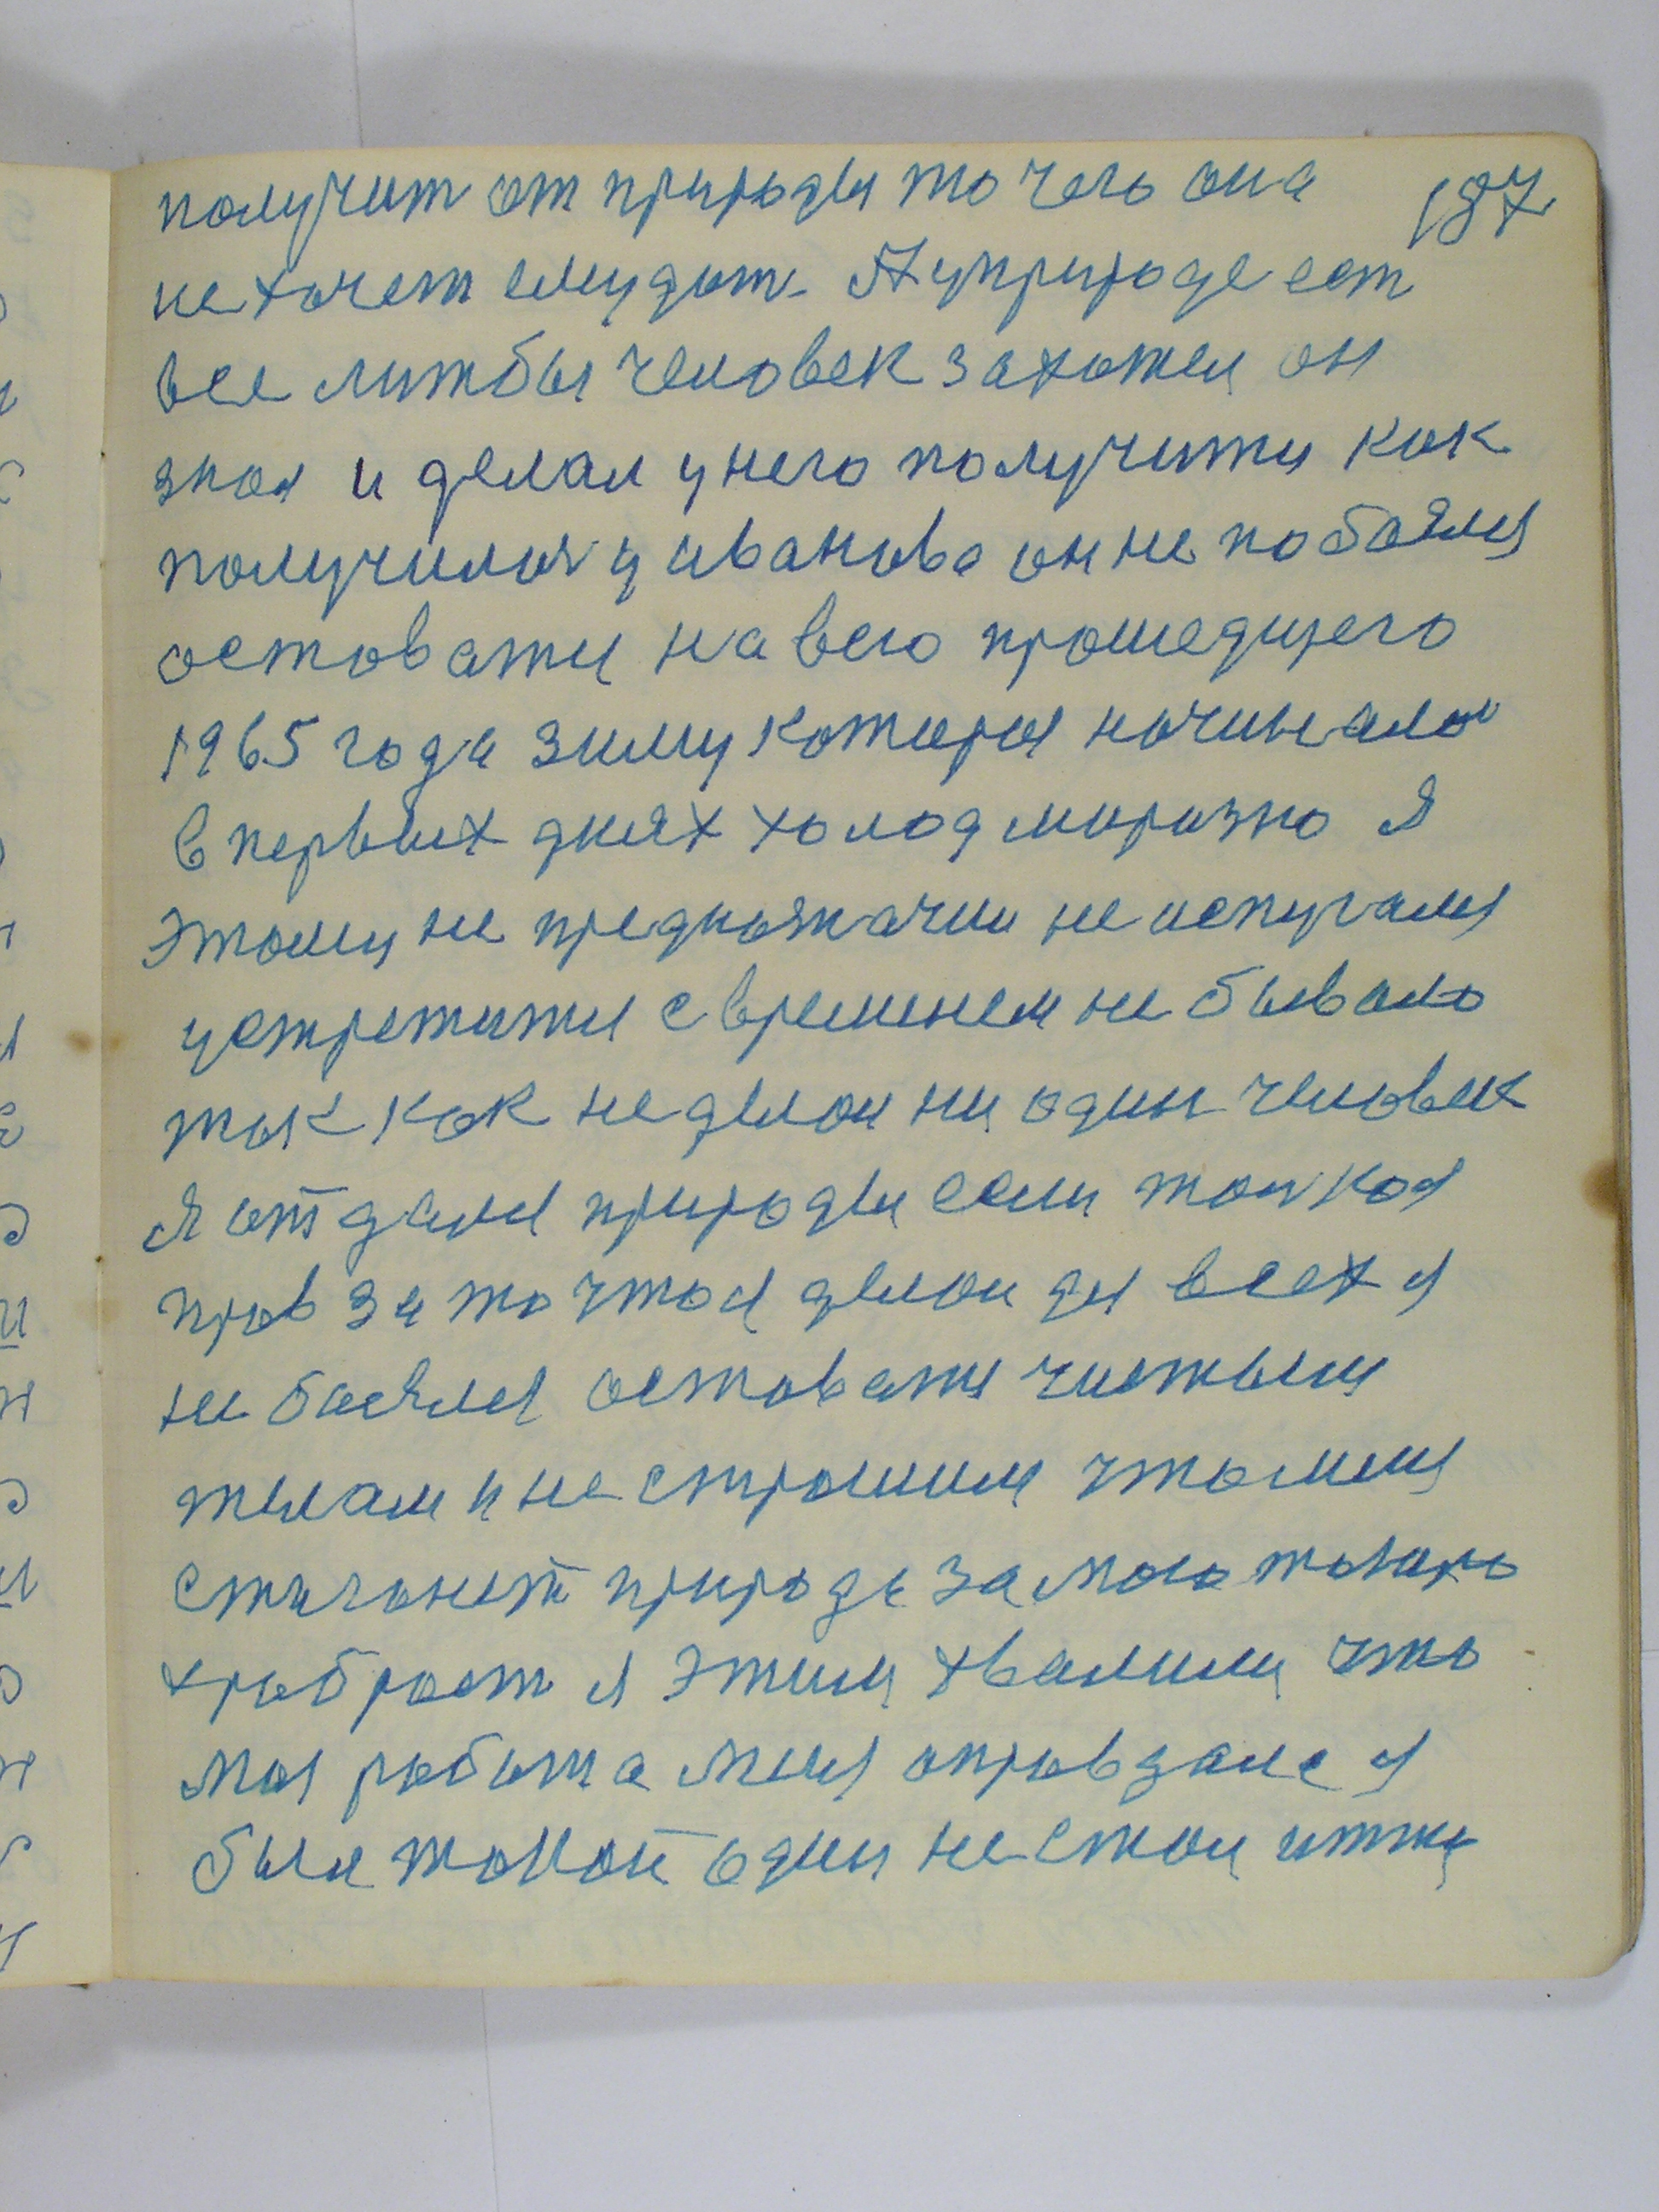 187
получит от природы то чего она
не хочет ему дат. А у природе ест
все лижбы человек захотел он
зная и делал у него получится как
получился у иванова он не побоялся
оставатся на всю прошедщего
1965 года зиму которая начиналас
в первых днях холод морозно я
этому не предназначил не испугался
устретится с временем не бывало
так как не делал ни один человек
я отдался природы если толкоя
прав за то что я делал дя всех я
не боялся оставатся чистым
телам и не страшился что меня
стигонет природа за мою такую
храброст я этим хвалился что
моя работа меня оправдала я
был такой один не стал итти